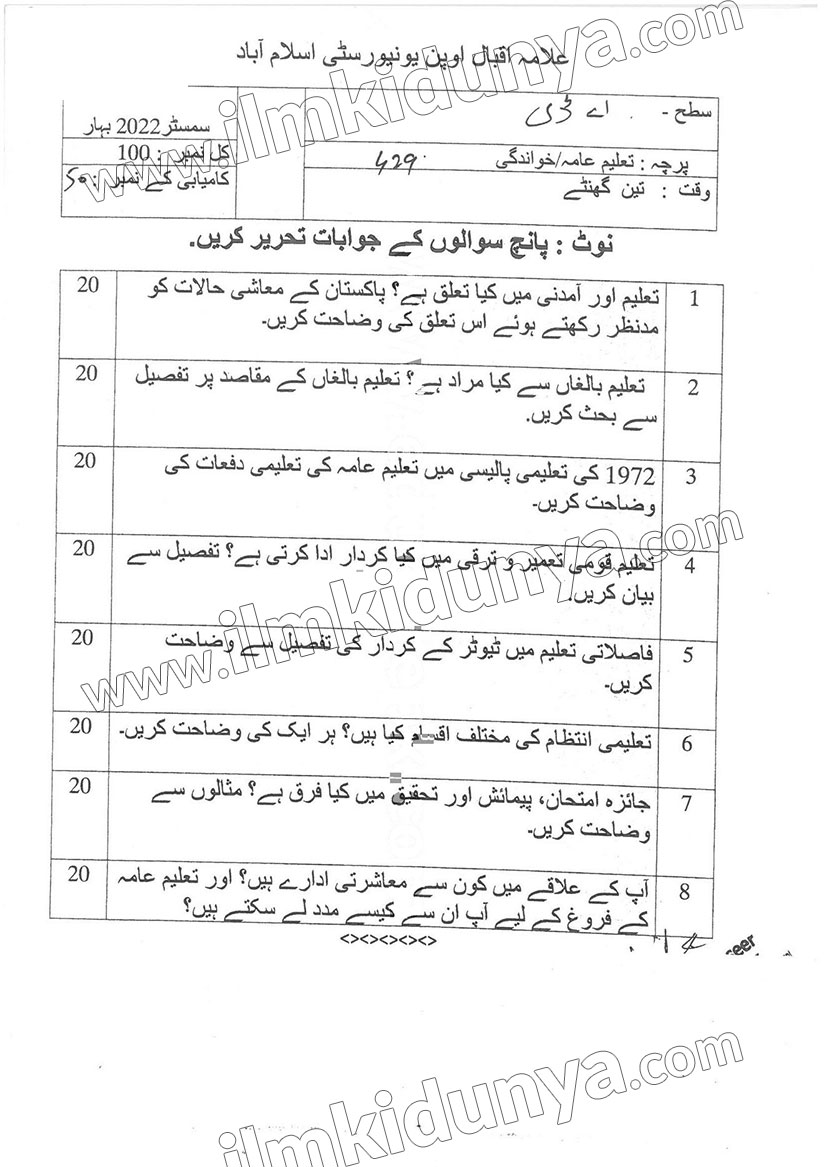 علامہ اقبال اوپن یونیورسٹی اسلام آباد
سطح - اے ڈی
سمسٹر 2022 بہار
پرچہ : تعلیم عامہ/خواندگی 429
کل نمبر : 100
وقت : تین گھنٹے
کامیابی کے نمبر : 50
نوٹ : پانچ سوالوں کے جوابات تحریر کریں۔
1 تعلیم اور آمدنی میں کیا تعلق ہے؟ پاکستان کے معاشی حالات کو 20
مدنظر رکھتے ہوئے اس تعلق کی وضاحت کریں۔
2 تعلیم بالغاں سے کیا مراد ہے؟ تعلیم بالغاں کے مقاصد پر تفصیل 20
سے بحث کریں۔
3 1972 کی تعلیمی پالیسی میں تعلیم عامہ کی تعلیمی دفعات کی 20
وضاحت کریں۔
4 تعلیم قومی تعمیر و ترقی میں کیا کردار ادا کرتی ہے؟ تفصیل سے 20
بیان کریں۔
5 فاصلاتی تعلیم میں ٹیوٹر کے کردار کی تفصیل سے وضاحت 20
کریں۔
6 تعلیمی انتظام کی مختلف اقسام کیا ہیں؟ ہر ایک کی وضاحت کریں۔ 20
7 جائزہ امتحان، پیمائش اور تحقیق میں کیا فرق ہے؟ مثالوں سے 20
وضاحت کریں۔
8 آپ کے علاقے میں کون سے معاشرتی ادارے ہیں؟ اور تعلیم عامہ 20
کے فروغ کے لیے آپ ان سے کیسے مدد لے سکتے ہیں؟
<><><><><>
www.ilmkidunya.com
www.ilmkidunya.com
www.ilmkidunya.com